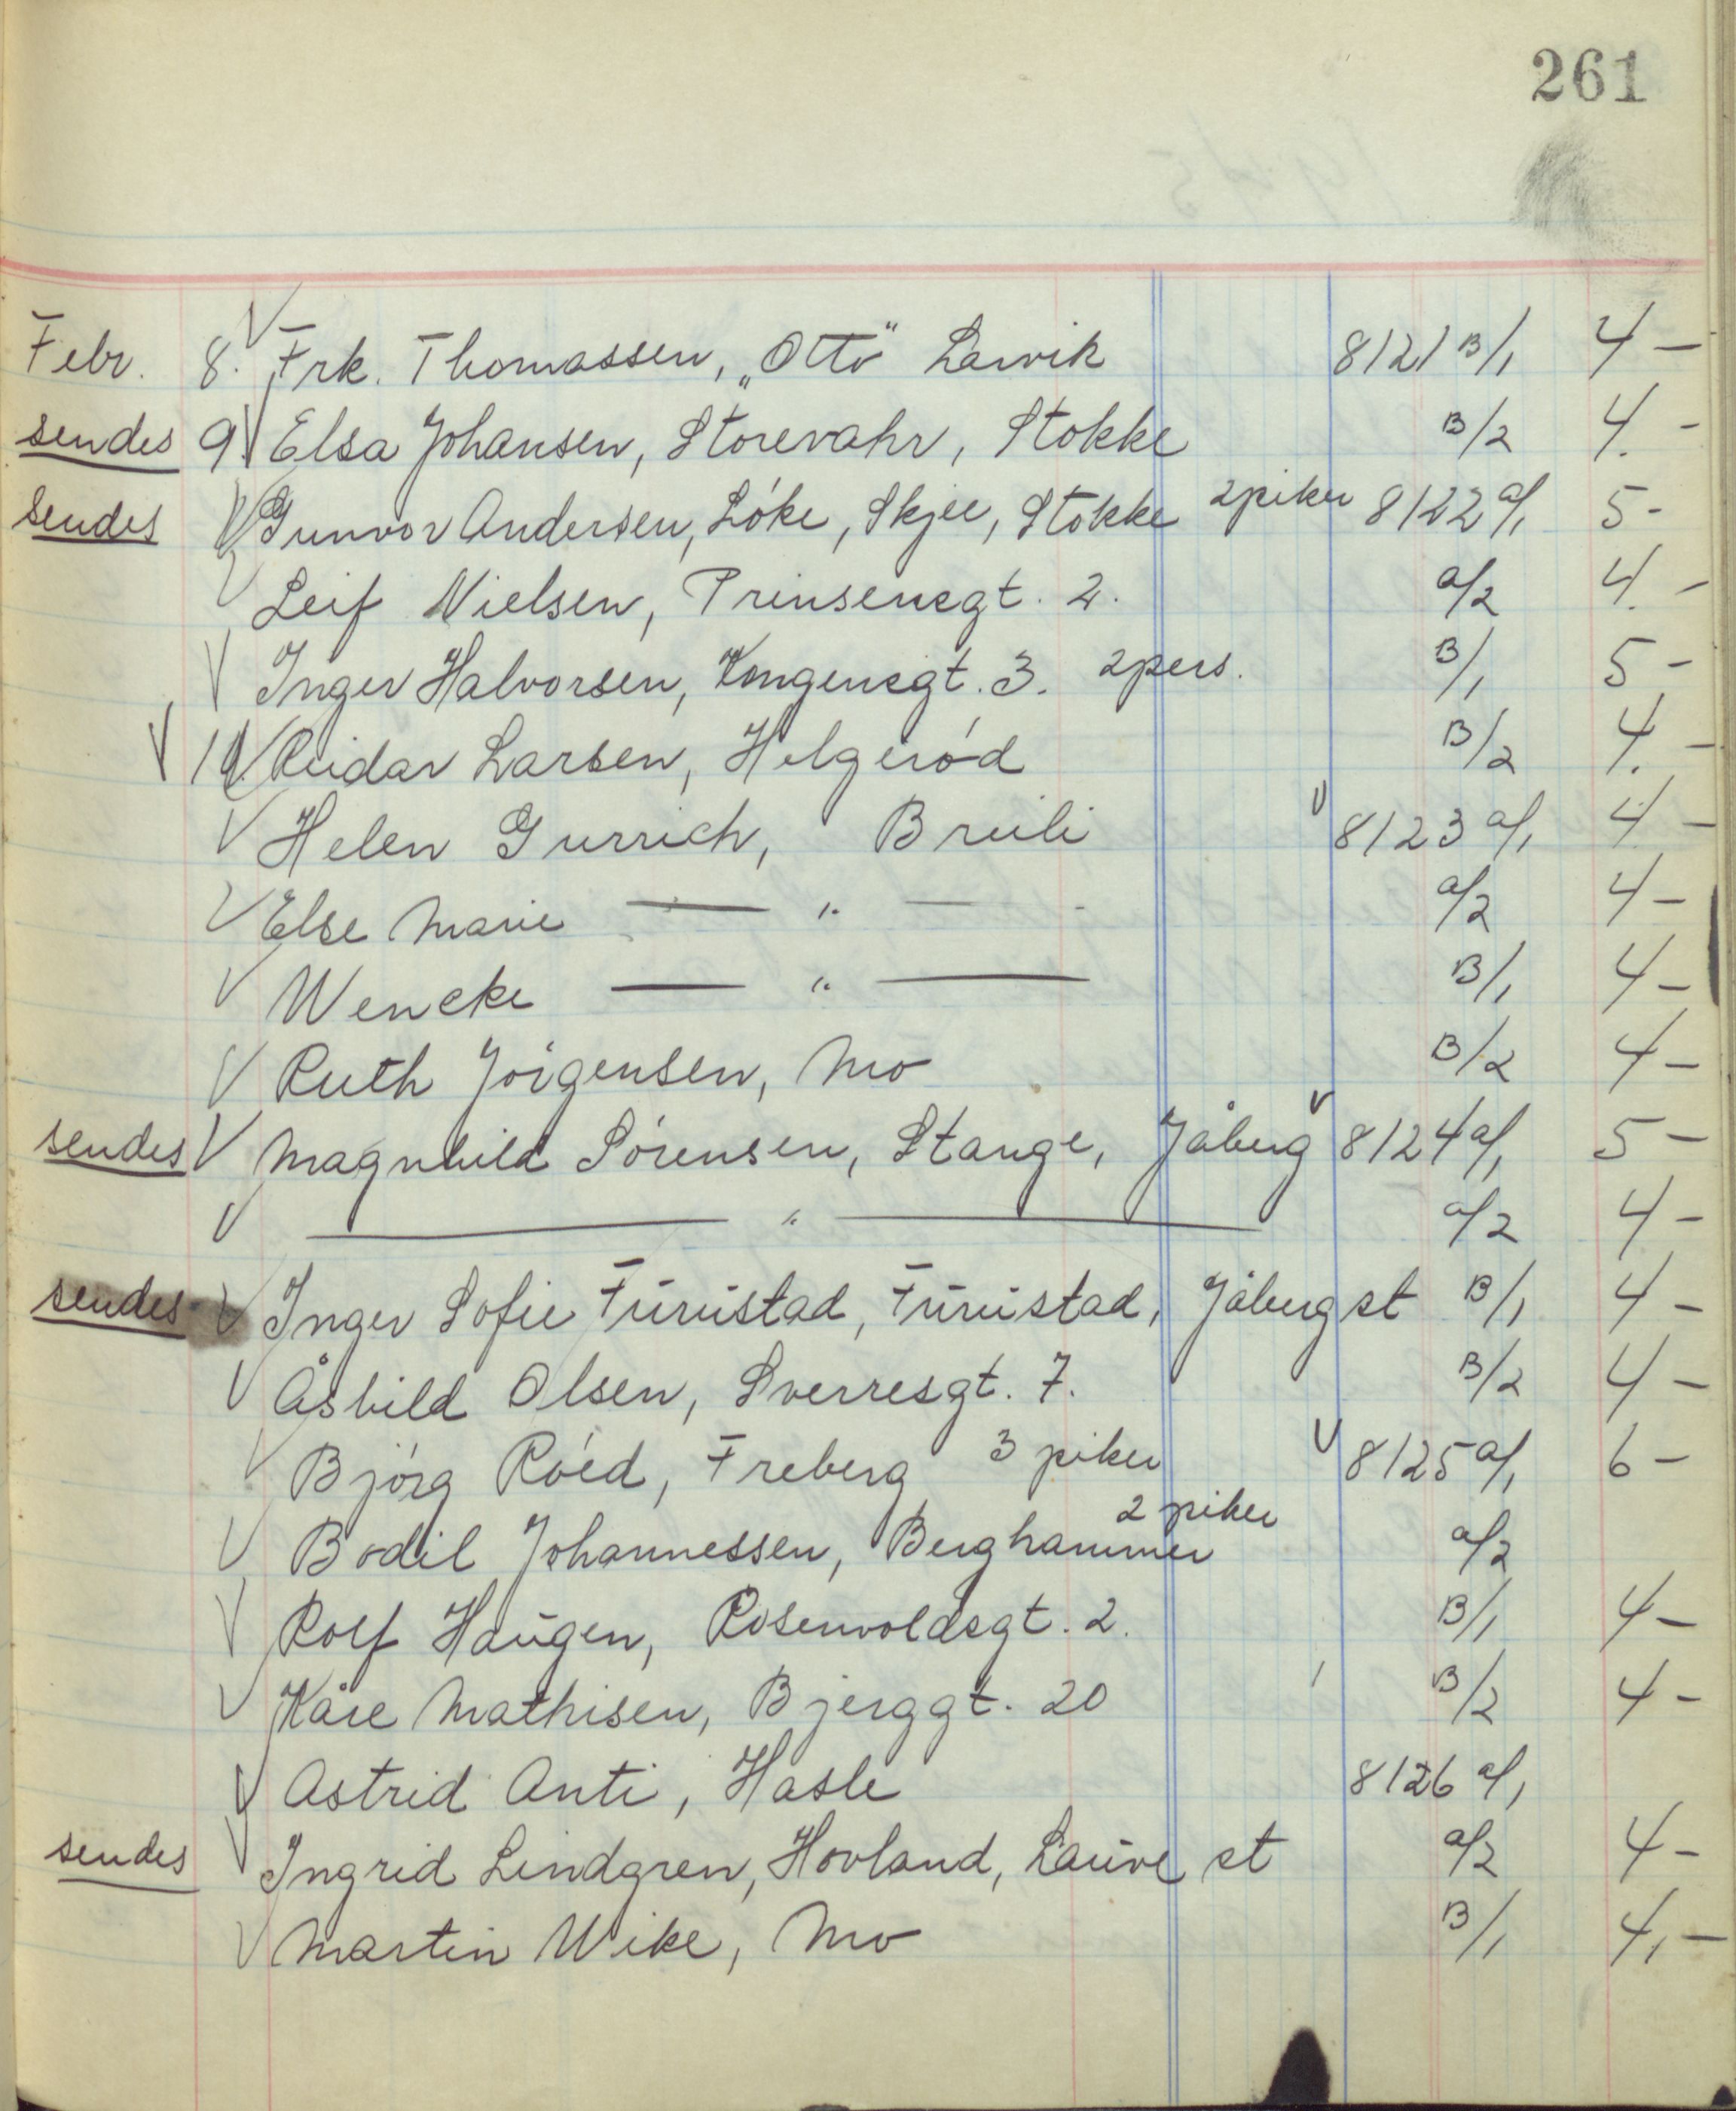 261
Febr. 8. Frk. Thomassen, „Otto" Larvik 8121 B/1 4 –
sendes 9. Elsa Johansen, Storevahr, Stokke B/2 4. -
sendes Gunvor Andersen, Löke, Skjee, Stokke 2 piker 8122 a/1 5 -
Leif Nielsen, Prinsensgt. 2. a/2 4. -
Inger Halvorsen, Kongensgt. 3. 2 pers. B/1 5 -
10 Reidar Larsen, Helgeröd B/2 4. –
Helen Gurrich, Breili 8123 a/1 4 –
Else Marie — " — - a/2 4 –
Wencke — " — B/1 4 –
Ruth Jörgensen, Mo B/2 4 –
sendes Magnhild Sörensen, Stange, Jåberg 8124 a/1 5 –
— " — a/2 4 -
sendes Inger Sofie Furustad, Furustad, Jåberg st B/1 4 -
Åshild Olsen, Sverresgt. 7. B/2 4 -
Björg Röed, Freberg 3 piker 8125 a/1 6 –
Bodil Johannessen, Berghammer 2 piker a/2
Rolf Haugen, Rosenvoldsgt. 2. B/1 4 –
Kåre Mathisen, Bjerggt. 20 B/2 4 -
Astrid Anti, Hasle 8126 a/1
sendes Ingrid Lindgren, Hovland, Lauve st a/2 4 –
Martin Wike, Mo B/1 4, –